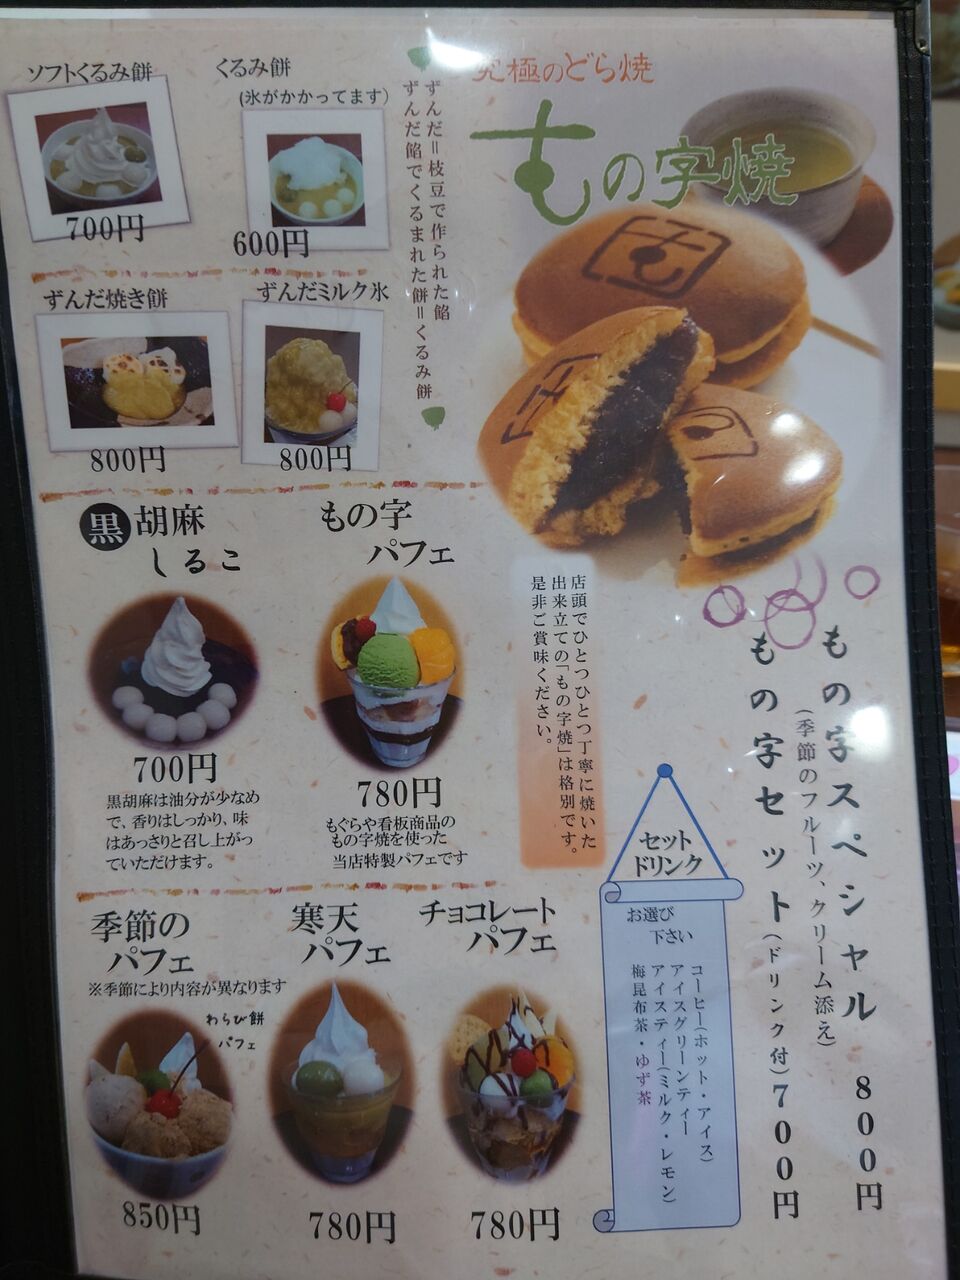 ソフトくるみ餅
700円
くるみ餅
(氷がかかってます)
600円
ずんだ＝枝豆で作られた餡
ずんだ餡でくるまれた餅＝くるみ餅
究極のどら焼
もの字焼
ずんだ焼き餅
800円
ずんだミルク氷
800円
黒胡麻
しるこ
700円
黒胡麻は油分が少なめ
で、香りはしっかり、味
はあっさりと召し上がっ
ていただけます。
もの字
パフェ
780円
もぐらや看板商品の
もの字焼を使った
当店特製パフェです
店頭でひとつひとつ丁寧に焼いた
出来立ての「もの字焼」は格別です。
是非ご賞味ください。
もの字スペシャル 800円
(季節のフルーツ、クリーム添え)
もの字セット(ドリンク付)700円
セット
ドリンク
お選び
下さい
コーヒー(ホット・アイス)
アイスグリーンティー
アイスティー(ミルク・レモン)
梅昆布茶・ゆず茶
季節の
パフェ
※季節により内容が異なります
わらび餅
パフェ
850円
寒天
パフェ
780円
チョコレート
パフェ
780円